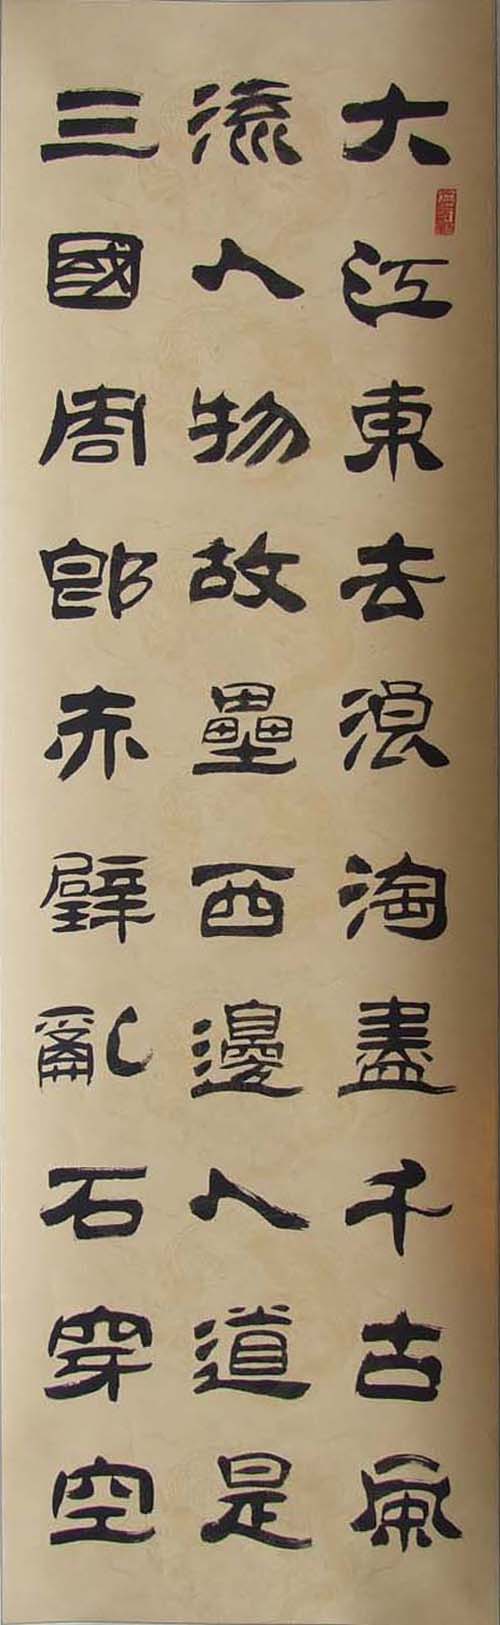 大江東去浪淘盡千古風
流人物故壘西邊人道是
三國周郎赤壁亂石穿空